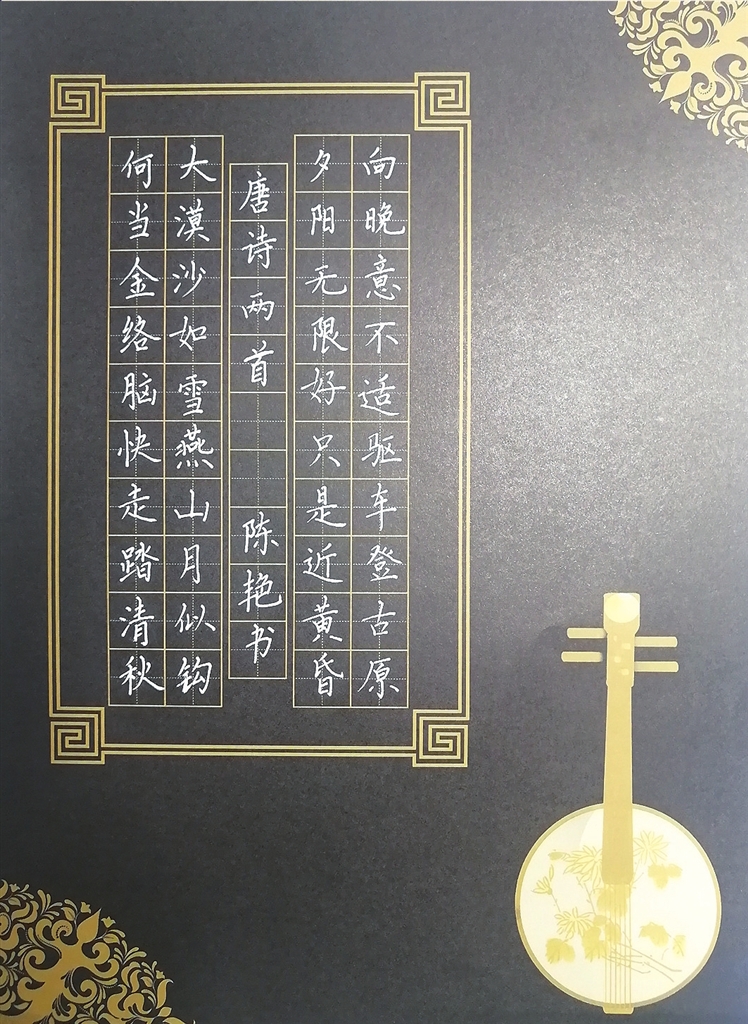 向晚意不适驱车登古原
夕阳无限好只是近黄昏
唐诗两首 陈艳书
大漠沙如雪燕山月似钩
何当金络脑快走踏清秋